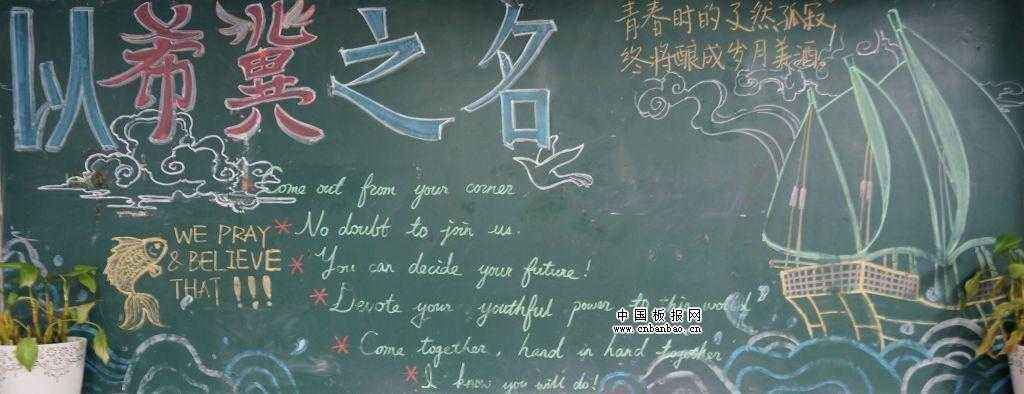 以希冀之名
青春时的孑然孤寂,
终将酿成岁月美酒。
Come out from your corner
No doubt to join us.
You can decide your future!
Devote your youthful power to this world!
Come together, hand in hand together
I know you will do!
WE PRAY
& BELIEVE
THAT!!!
中国板报网
www.cnbanbao.cn